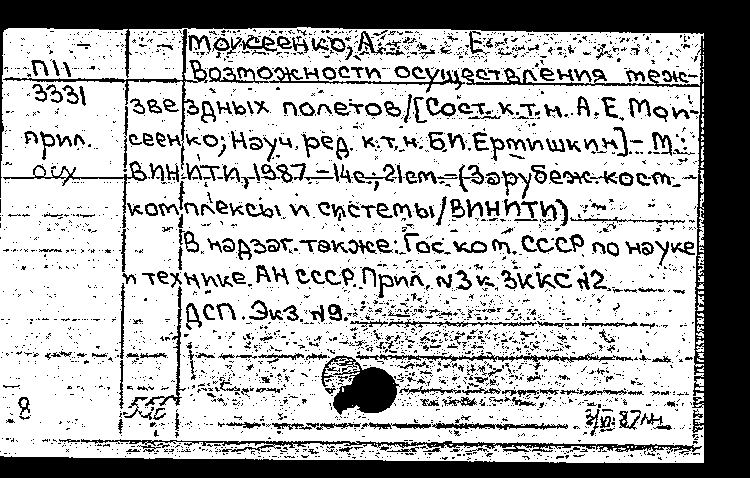 Моисеенко, А. Е
П11
Возможности осуществления меж-
3331
звездных полетов/[Сост. к.т.н. А.Е. Мои-
прил.
сеенко; Науч. ред. к.т.н. Б.И. Ермишкин] - М.:
осх
ВИНИТИ, 1987. - 14с.; 21см. - (Зарубеж. косм.
комплексы и системы/ВИНИТИ)
В надзаг. также: Гос. ком. СССР по науке
и технике. АН СССР. Прил. N3 к ЗККС N2
ДСП. Экз. N9.
8
3/VI-87